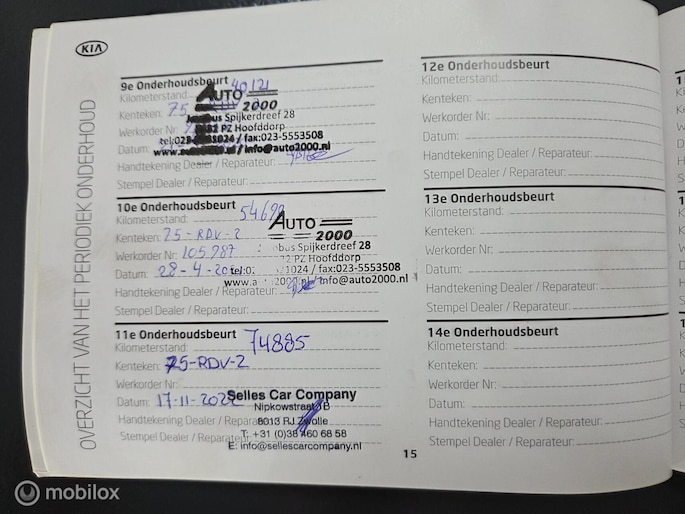 KIA
OVERZICHT VAN HET PERIODIEK ONDERHOUD
9e Onderhoudsbeurt
Kilometerstand:
Kenteken: 75
Werkorder Nr:
Datum:
Handtekening Dealer / Reparateur:
Stempel Dealer / Reparateur:
AUTO
2000
Spijkerdreef 28
PZ Hoofddorp
1024 / fax:023-5553508
info@auto2000.nl
10e Onderhoudsbeurt
Kilometerstand:
Kenteken: 75-RDV-2
Werkorder Nr: 105987
Datum: 28-4-20
Handtekening Dealer / Reparateur:
Stempel Dealer / Reparateur:
AUTO
2000
obus Spijkerdreef 28
2 PZ Hoofddorp
1024 / fax:023-5553508
info@auto2000.nl
11e Onderhoudsbeurt
Kilometerstand: 74885
Kenteken: 75-RDV-2
Werkorder Nr:
Datum: 17-11-2022
Handtekening Dealer / Reparateur:
Stempel Dealer / Reparateur:
Selles Car Company
Nipkowstraat
8013 RJ Zwolle
T: +31 (0)38 460 68 58
E: info@sellescarcompany.nl
12e Onderhoudsbeurt
Kilometerstand:
Kenteken:
Werkorder Nr:
Datum:
Handtekening Dealer / Reparateur:
Stempel Dealer / Reparateur:
13e Onderhoudsbeurt
Kilometerstand:
Kenteken:
Werkorder Nr:
Datum:
Handtekening Dealer / Reparateur:
Stempel Dealer / Reparateur:
14e Onderhoudsbeurt
Kilometerstand:
Kenteken:
Werkorder Nr:
Datum:
Handtekening Dealer / Reparateur:
Stempel Dealer / Reparateur:
15
mobilox